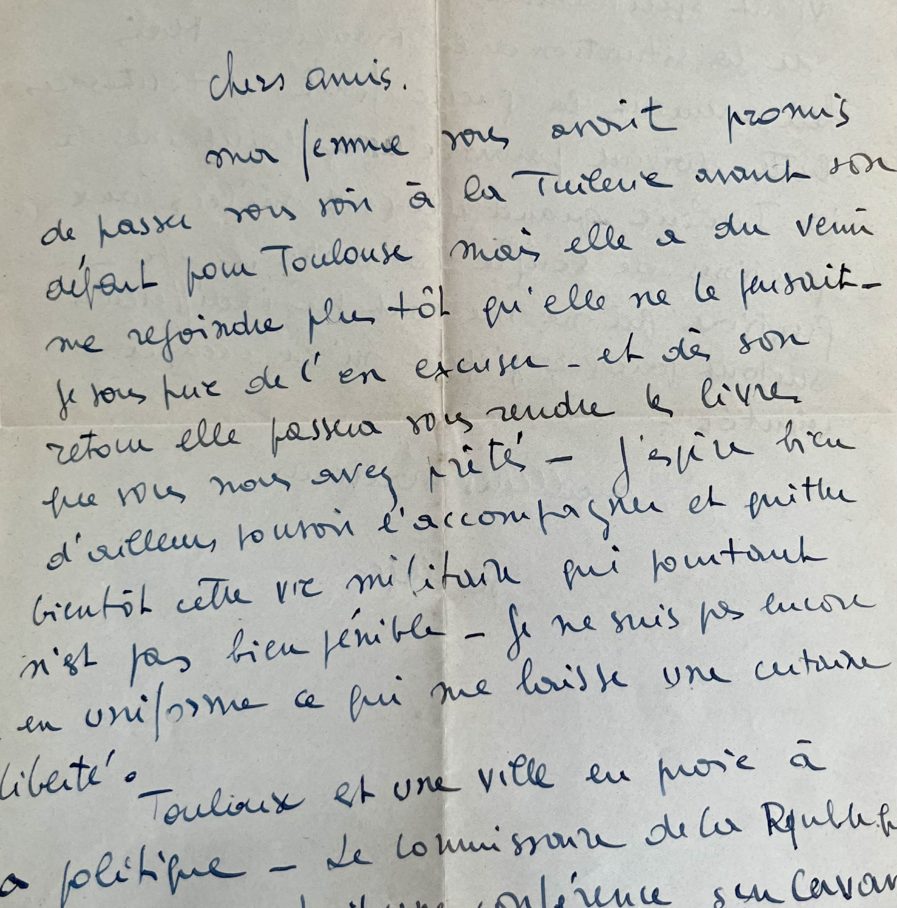 Chers amis.
ma femme vous avait promis
de passer vous voir à la Tuilerie avant son
départ pour Toulouse mais elle a du venir
me rejoindre plus tôt qu'elle ne le pensait –
Je vous prie de l'en excuser – et dès son
retour elle passera vous rendre les livres
que vous nous avez prêtés – J'espère bien
d'ailleurs pouvoir l'accompagner et quitter
bientôt cette vie militaire qui pourtant
n'est pas bien pénible – Je ne suis pas encore
en uniforme ce qui me laisse une certaine
liberté.
Toulouse est une ville en proie à
la politique – Le Commissaire de la Républiq
une conférence